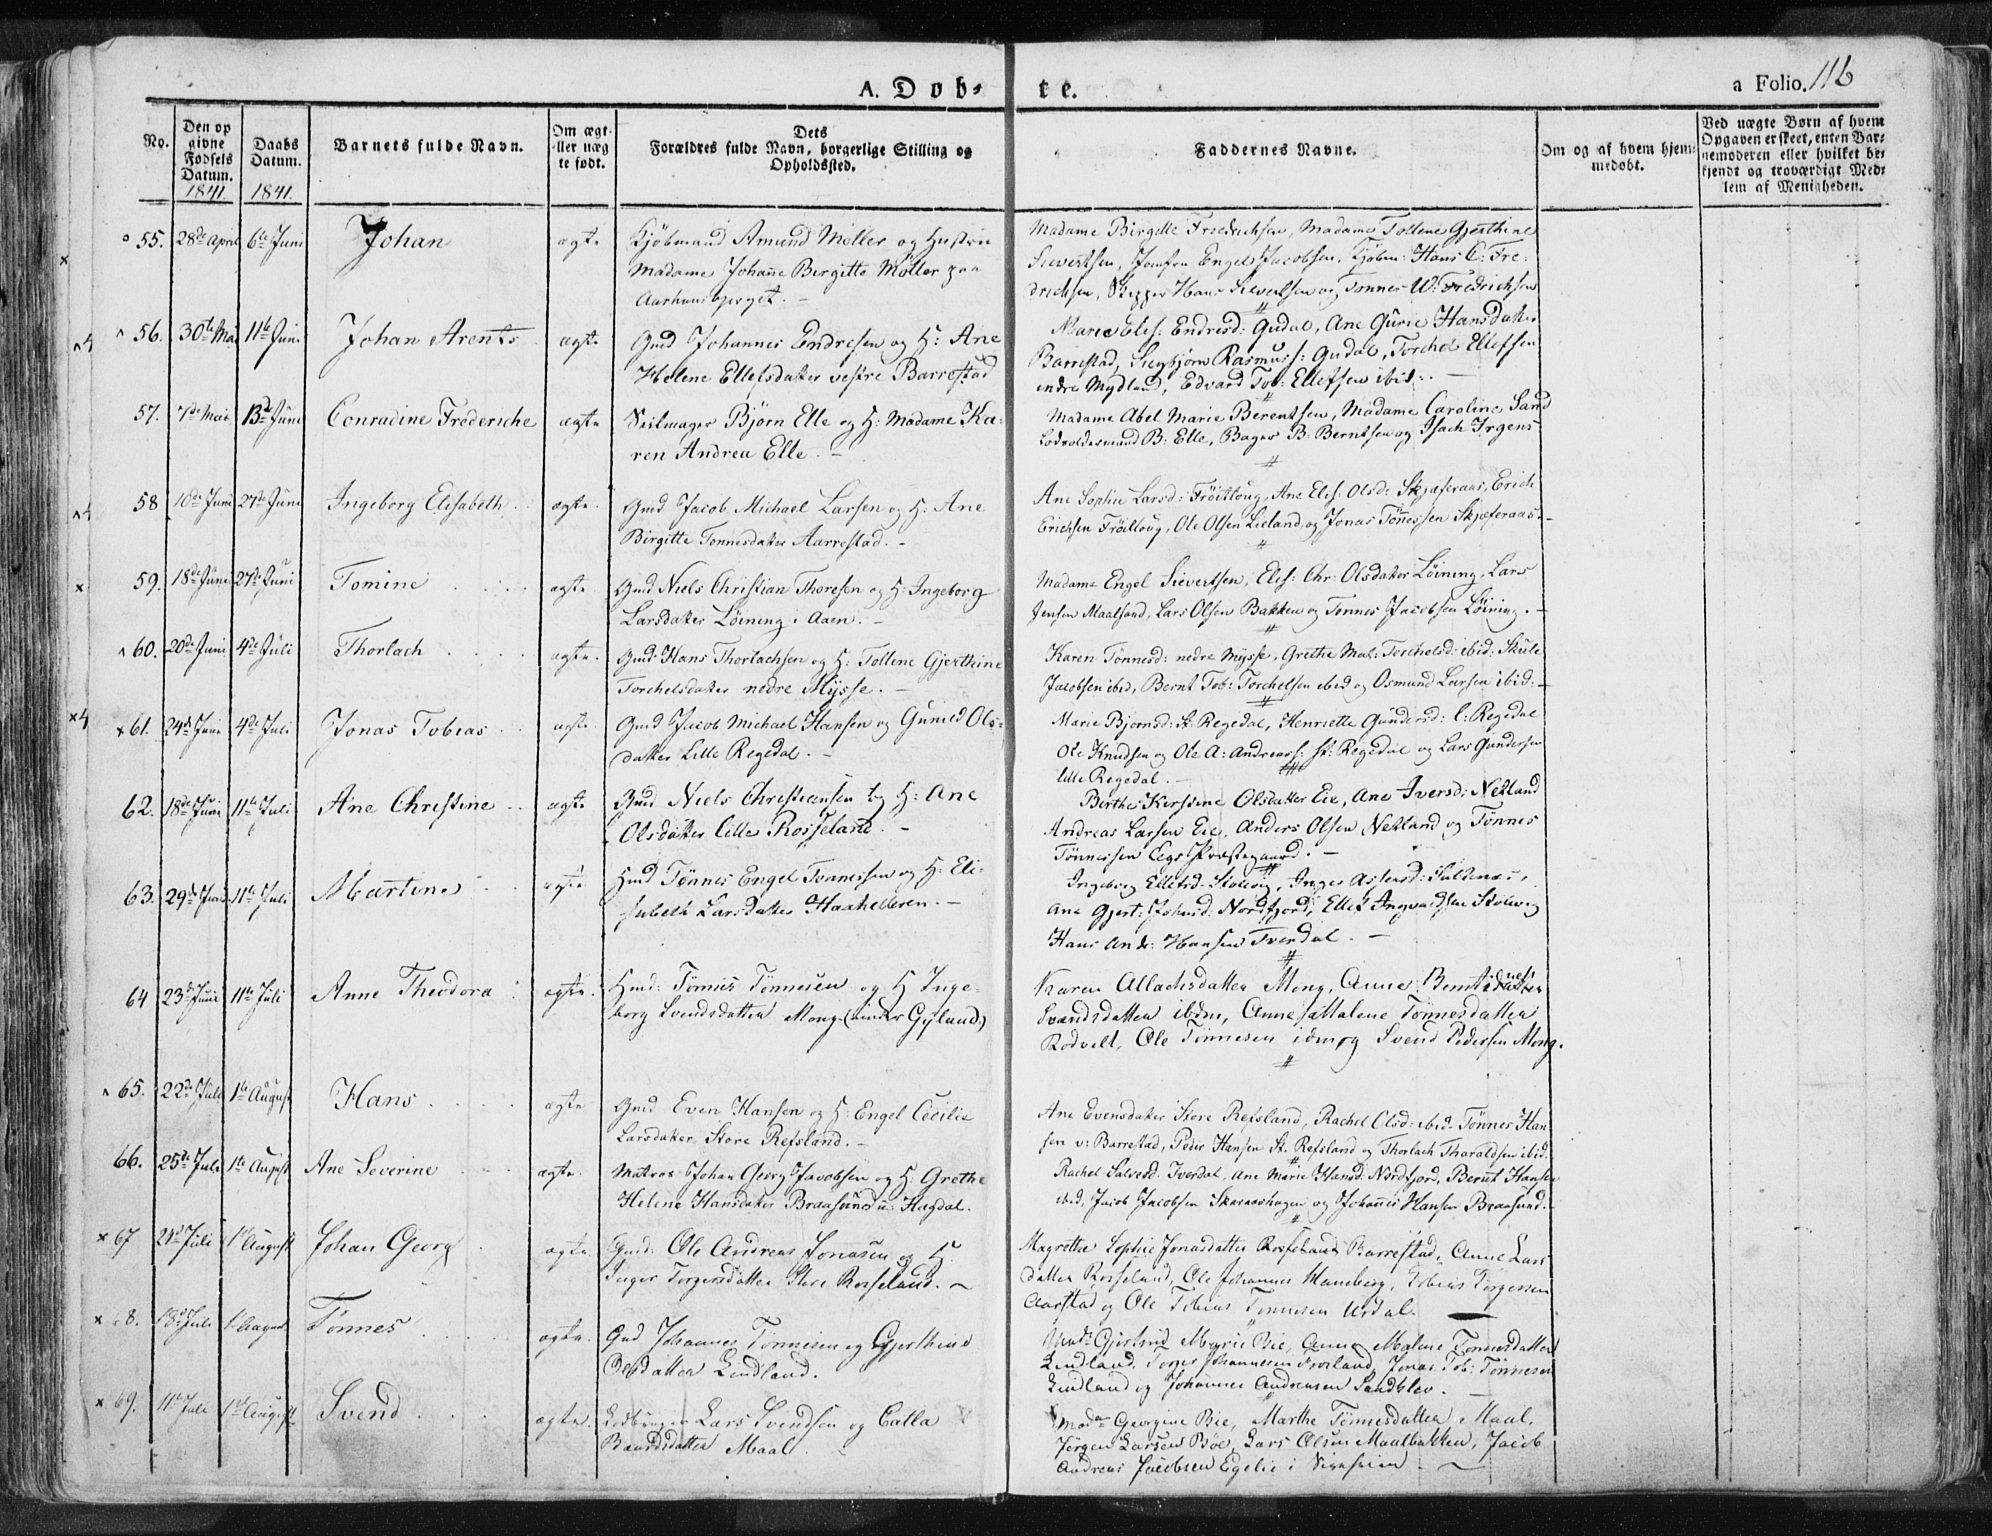 A. Døb-
te.
a Folio. 116
No.
Den op
givne
Fødsels
Datum.
1841.
Daabs
Datum.
1841.
Barnets fulde Navn.
Om ægt-
eller uæg
te født.
Dets
Forældres fulde Navn, borgerlige Stilling og
Opholdssted.
Faddernes Navne.
Om og af hvem hjem-
medøbt.
Ved uægte Børn af hvem
Opgaven er skeet, enten Bar-
nemoderen eller hvilket be-
kjendt og troværdigt Med-
lem af Menigheden.
55. 28de April 6te Juni Johan ægte Kjøbmand Amund Møller og Hustru
Madame Johañe Birgitte Møller paa
Madame Birgitte Friedrichsen, Madame Tollene Gjerthine
Sievertsen, Jomfru Engel Jacobsen, Kjøbm: Hans C: Fre-
drichsen, Skipper Hans Sievertsen og Tønnes W: Fredrichsen
56. 30te Mai 11te Juni Johan Arents ægte Gmd Johannes Endresen og H: Ane
Helene Ellefsdatter vestre Barrestad
Marie Elis: Endresd: Gudal, Ane Gurie Hansdatter
Barrestad, Siegbjørn Rasmuss: Gudal, Torchel Ellefsen
indre Mydland, Edvard Tob: Ellefsen ibid:
57. 7de Mai 13de Juni Conradine Frederiche ægte Seilmager Bjørn Elle og H: Madame Ka-
ren Andrea Elle.
Madame Abel Marie Berentsen, Madame Caroline Sand
Lodsoldermand B: Elle, Bager B: Berntsen og Isach Irgens
58 10de Juni 27de Juni Ingeborg Elisabeth ægte. Gmd Jacob Michael Larsen og H: Ane
Birgitte Tonnesdatter Aarrestad.
Ane Sophie Larsd: Frøitloug, Ane Elis: Olsd: Skjæferaas, Erich
Erichsen Frøitloug, Ole Olsen Lieland, og Jonas Tønessen Skjæferaas.
59. 18de Juni 27de Juni Tomine ægte Gmd Niels Christian Thoresen og H: Ingeborg
Larsdatter Løining i Aaen.
Madame Engel Sievertsen, Elis: Chr: Olsdatter Løining, Lars
Jensen Maalsand, Lars Olsen Bakken og Tønnes Jacobsen Løining.
60. 20de Juni 4de Juli Thorlach ægte. Gmd Hans Thorlachsen og H: Tollene Gjerthine
Torchelsdatter nedre Mysse.
Karen Tønnesd: nedre Mysse, Grethe Mal: Torchelsd: ibid: Skule
Jacobsen ibid, Bernt Tob: Torchelsen ibid og Osmund Larsen ibid:
61. 24de Juni 4de Juli Jonas Tobias ægte Gmd Jacob Michael Hansen og Guñild Ols-
datter Lille Regedal.
Marie Bjørnsd: St: Regedal, Henriette Gundersd: l: Regedal
Ole Knudsen og Ole A: Andreass: St: Regedal og Lars Gundersen
lille Regedal.
62. 18de Juni 11te Juli Ane Christine ægte Gmd Niels Christiansen og H: Ane
Olsdatter lille Rosseland.
Berthe Kirstine Olsdatter Eie, Ane Iversd: Netland
Andreas Larsen Eie, Anders Olsen Netland og Tønnes
Tønnessen Eegs Præstegaard.
63. 29de Juni 11te Juli Martine ægte Hmd Tønnes Engel Tønnessen og H: Eli-
sabeth Larsdatter Haakelleren.
Ingeborg Ellefsd: Stolevig, Inger Aslaksd:
Ane Gjert: Johnsd: Nordfjord, Ellef Ingvaldsen Stolevig
Hans Andr: Hansen Tverdal.
64 23de Juni 11te Juli Anne Theodora ægte. Hmd: Tønnes Tønnesen og H Inge-
borg Svendsdatter Mong. (under Gyland)
Karen Allachsdatter Mong, Anne Berntine
Svendsdatter ibdm, Anne Malene Tønnesdatter
Rodvelt, Ole Tønnesen idm og Svend Pedersen Mong.
65. 22de Juli 1te August Hans ægte Gmd Even Hansen og H: Engel Cecilie
Larsdatter Store Refsland.
Ane Evensdatter Store Refsland, Rachel Olsd: ibid: Tønnes Han-
sen v: Barrestad, Peder Hansen St. Refsland og Thorlach Tharaldsen ibid.
66. 25de Juli 1te August Ane Severine ægte. Matros Johan Georg Jacobsen og H: Grethe
Helene Hansdatter Braasund u: Hagdal.
Rachel Salved: Tverdal, Ane Marie Hansd: Nordfjord, Bernt Hansen
ibid, Jacob Jacobsen Skaraashagen og Johannes Hansen Braasund.
67 21de Juli 1te August Johan Georg ægte. Gmd: Ole Andreas Jonasen og H.
Inger Torgersdatter Store Rosseland.
Magrethe Sophie Jonasdatter Barrestad, Anne Lars
datter Rosseland, Ole Johannes Haneberg, Tobias Torgersen
Aarstad og Ole Tobias Tønnesen Urdal.
68. 18de Juli 1te August Tønnes ægte. Gmd Johannes Tønnesen og Gjerthine
Olsdatter Lindland.
Mad: Gjertrud Marie Bie, Anne Malene Tønnesdatter
Lindland, Torger Johannesen Frøiland, Jonas Tob: Tønnesen
Lindland og Johannes Andreasen Sandblev.
69. 11te Juli 1te August Svend ægte. Lars Svendsen og Catla
Baardsdatter Maal.
Made Georgine Bie, Marthe Tønnesdatter Maal,
Jørgen Larsen Bøe, Lars Olsen Maalbakken, Jacob
Andreas Jacobsen Egelie i